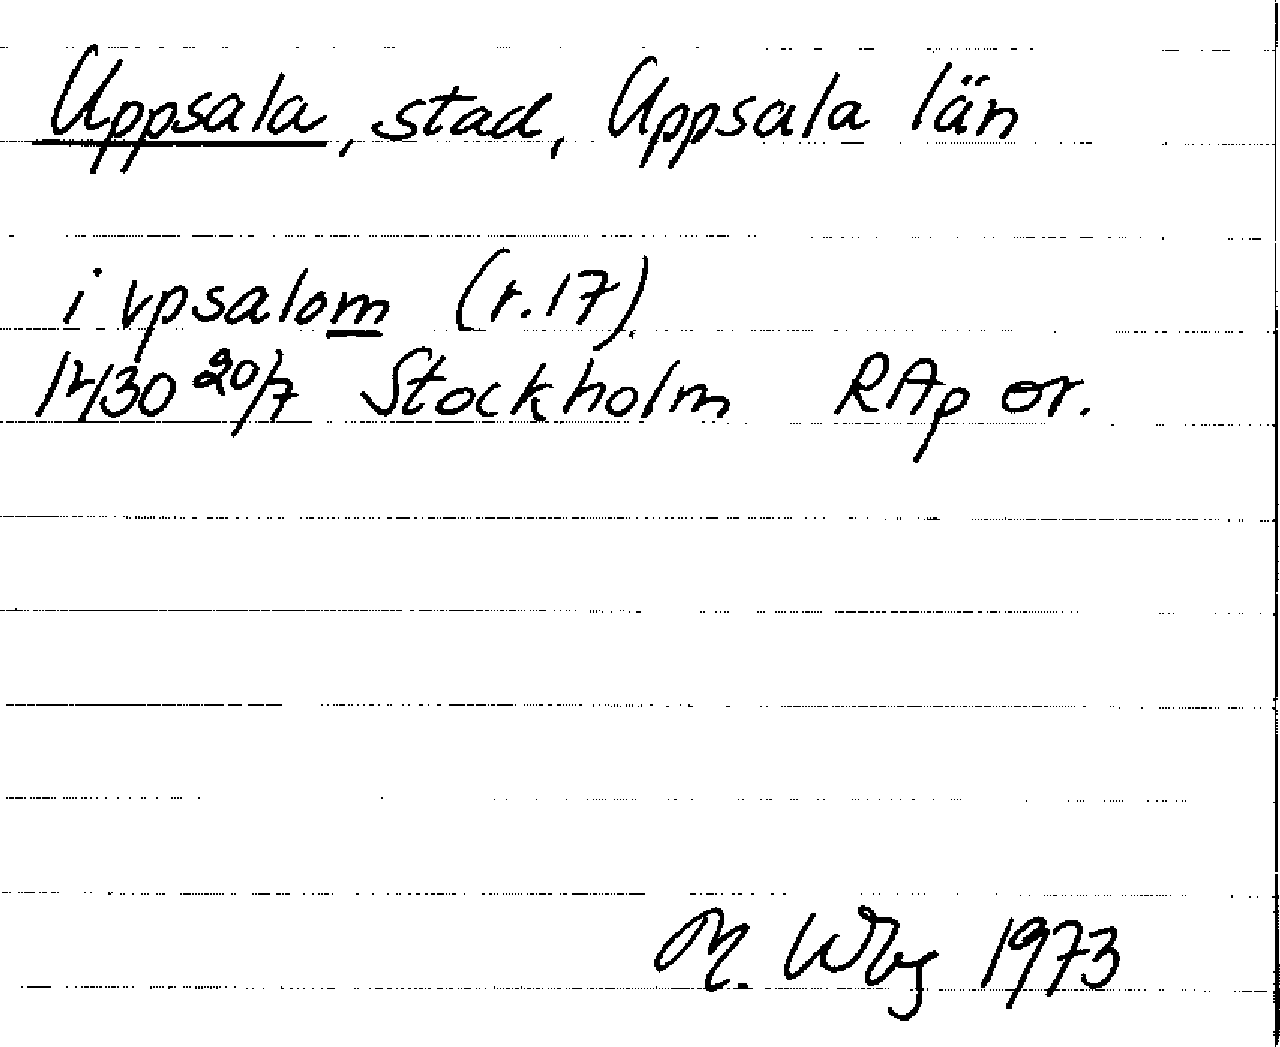 Uppsala, stad, Uppsala län
i vpsalom (r.17).
1430 20/7 Stockholm RAp or.
M. Wbg 1973